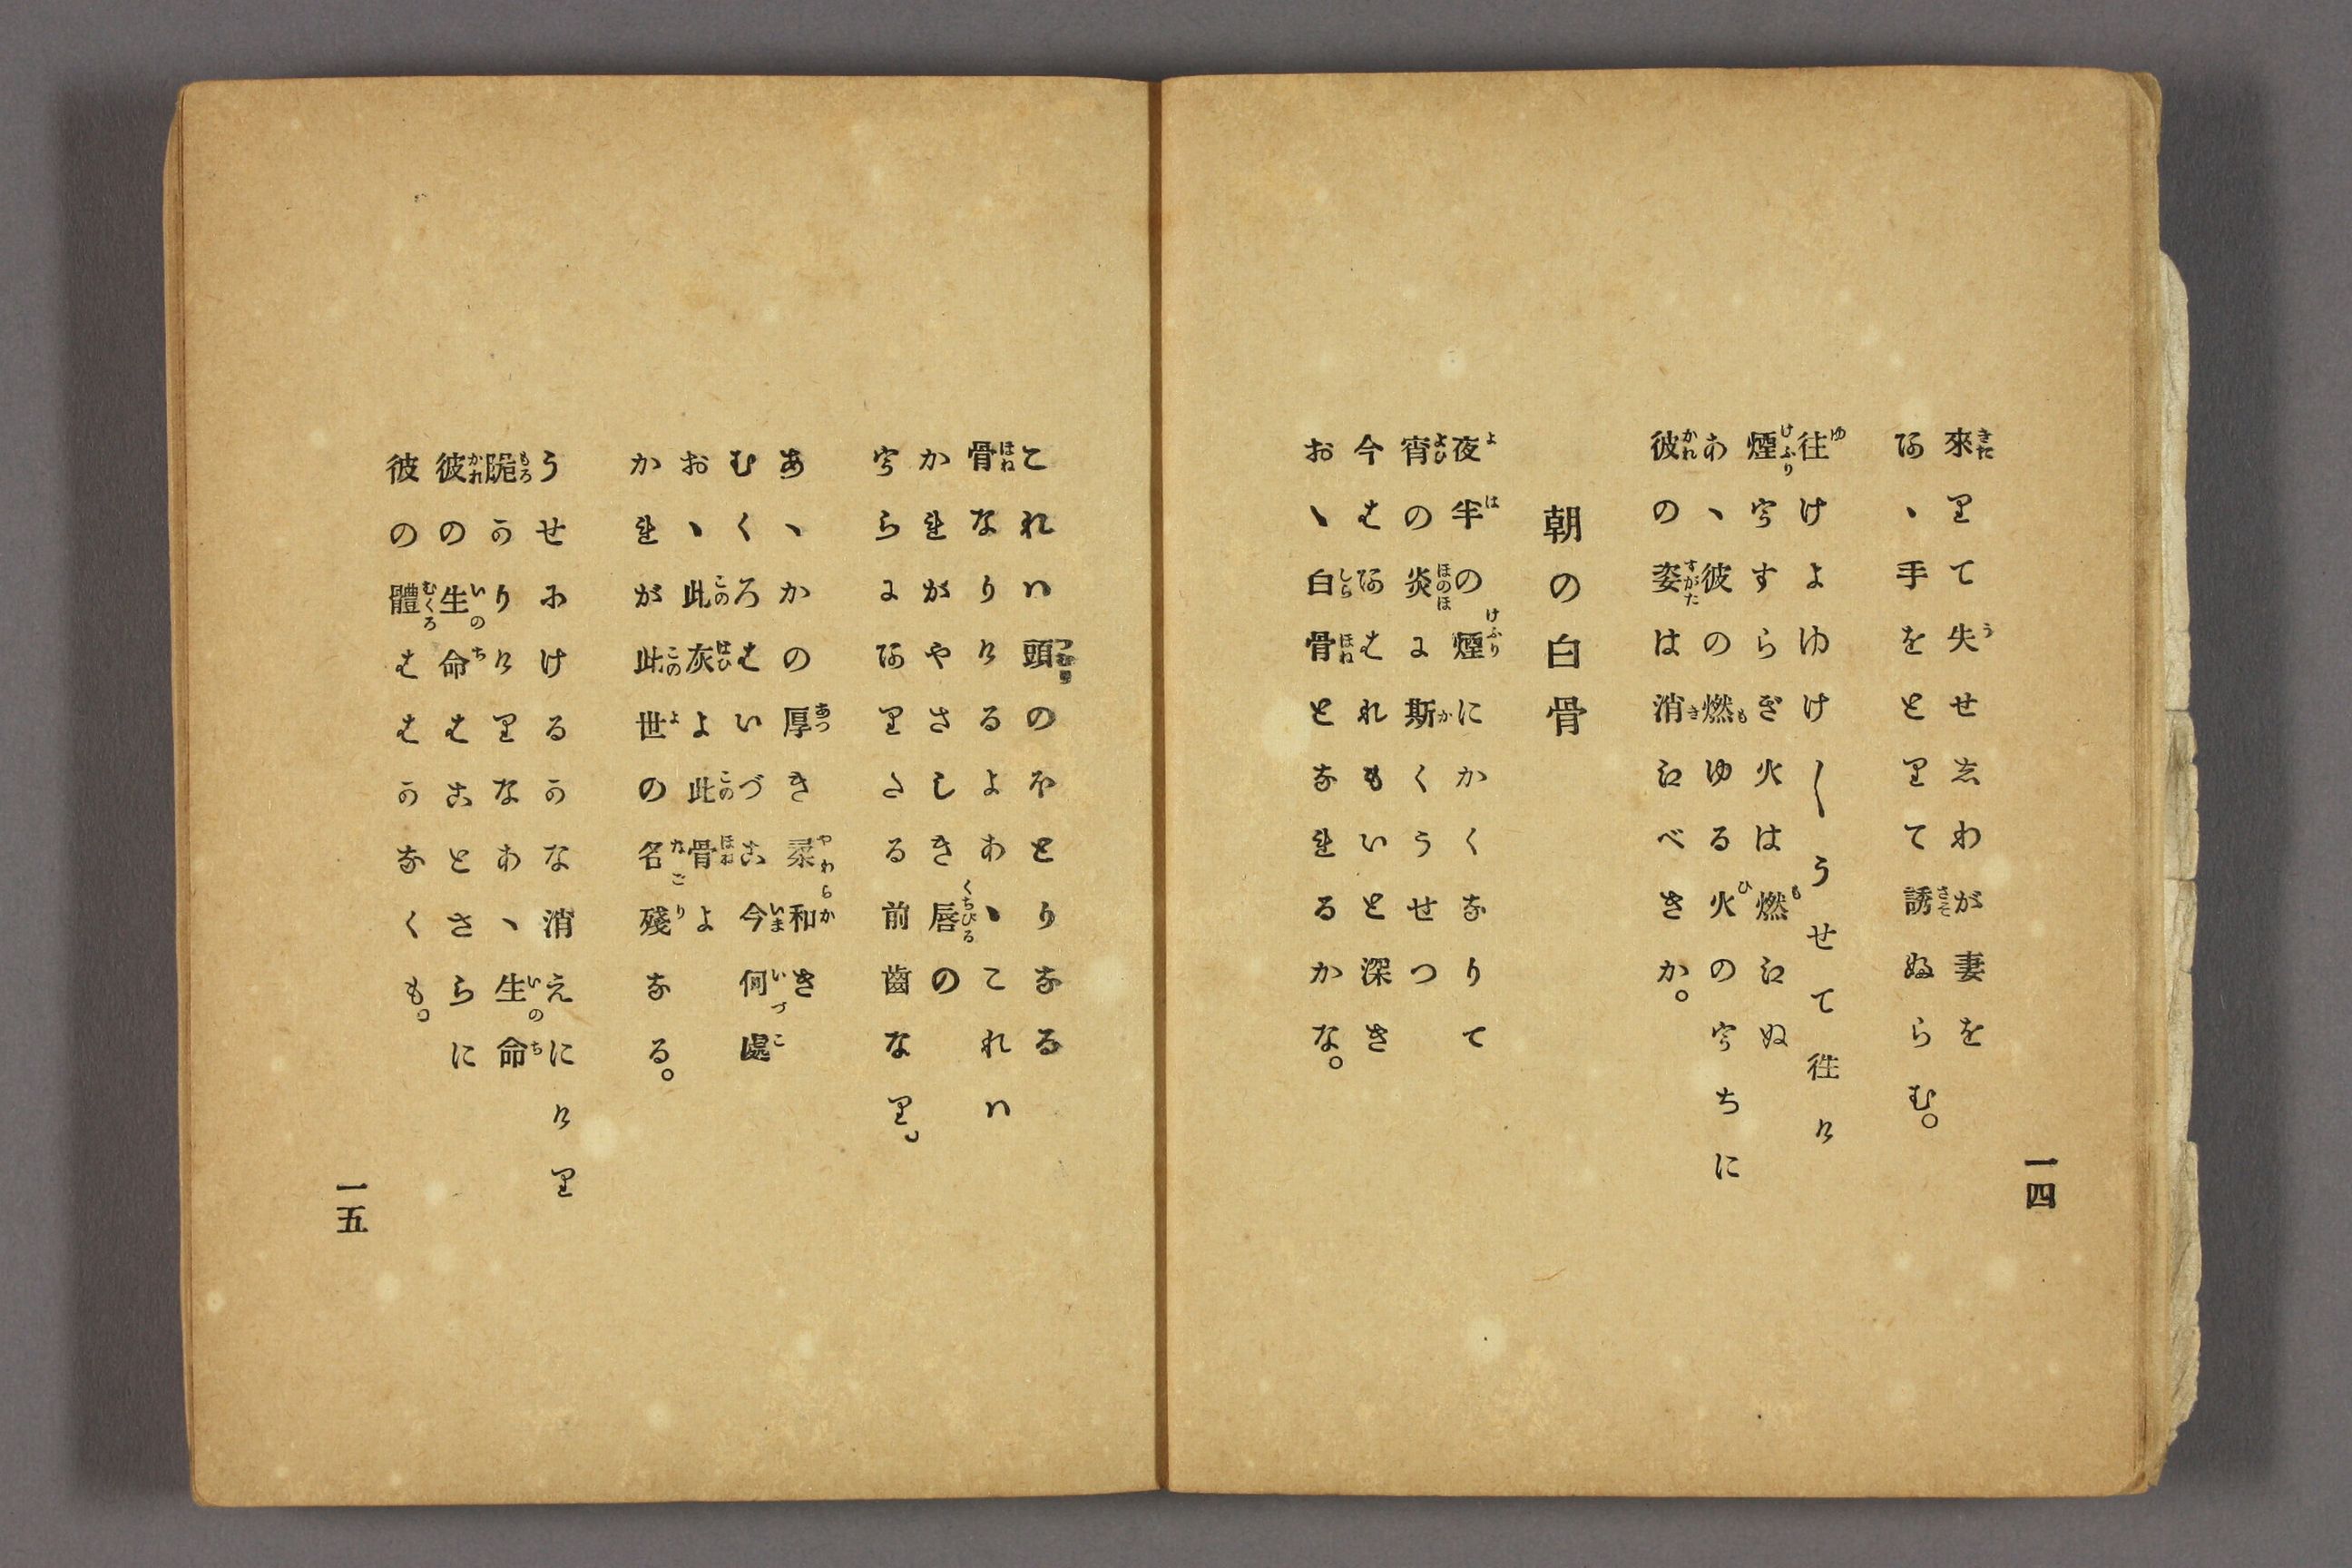 一四
來りて失せしわが妻を
あゝ手をとりて誘ぬらむ。
往けよゆけ〳〵うせて往け
煙うすらぎ火は燃えぬ
あゝ彼の燃ゆる火のうちに
彼の姿は消えべきか。
朝の白骨
夜半の煙にかくなりて
宵の炎に斯くうせつ
今はあはれもいと深き
おゝ白骨となれるかな。
これハ頭のほとりなる
骨なりけるよあゝこれハ
かれがやさしき唇の
うらにありたる前齒なり。
あゝかの厚き柔和き
むくろはいづこ今何處
おゝ此灰よ此骨よ
かれが此世の名殘なる。
うせにけるかな消えにけり
脆かりけりなあゝ生命
彼の生命はことさらに
彼の體ははかなくも。
一五